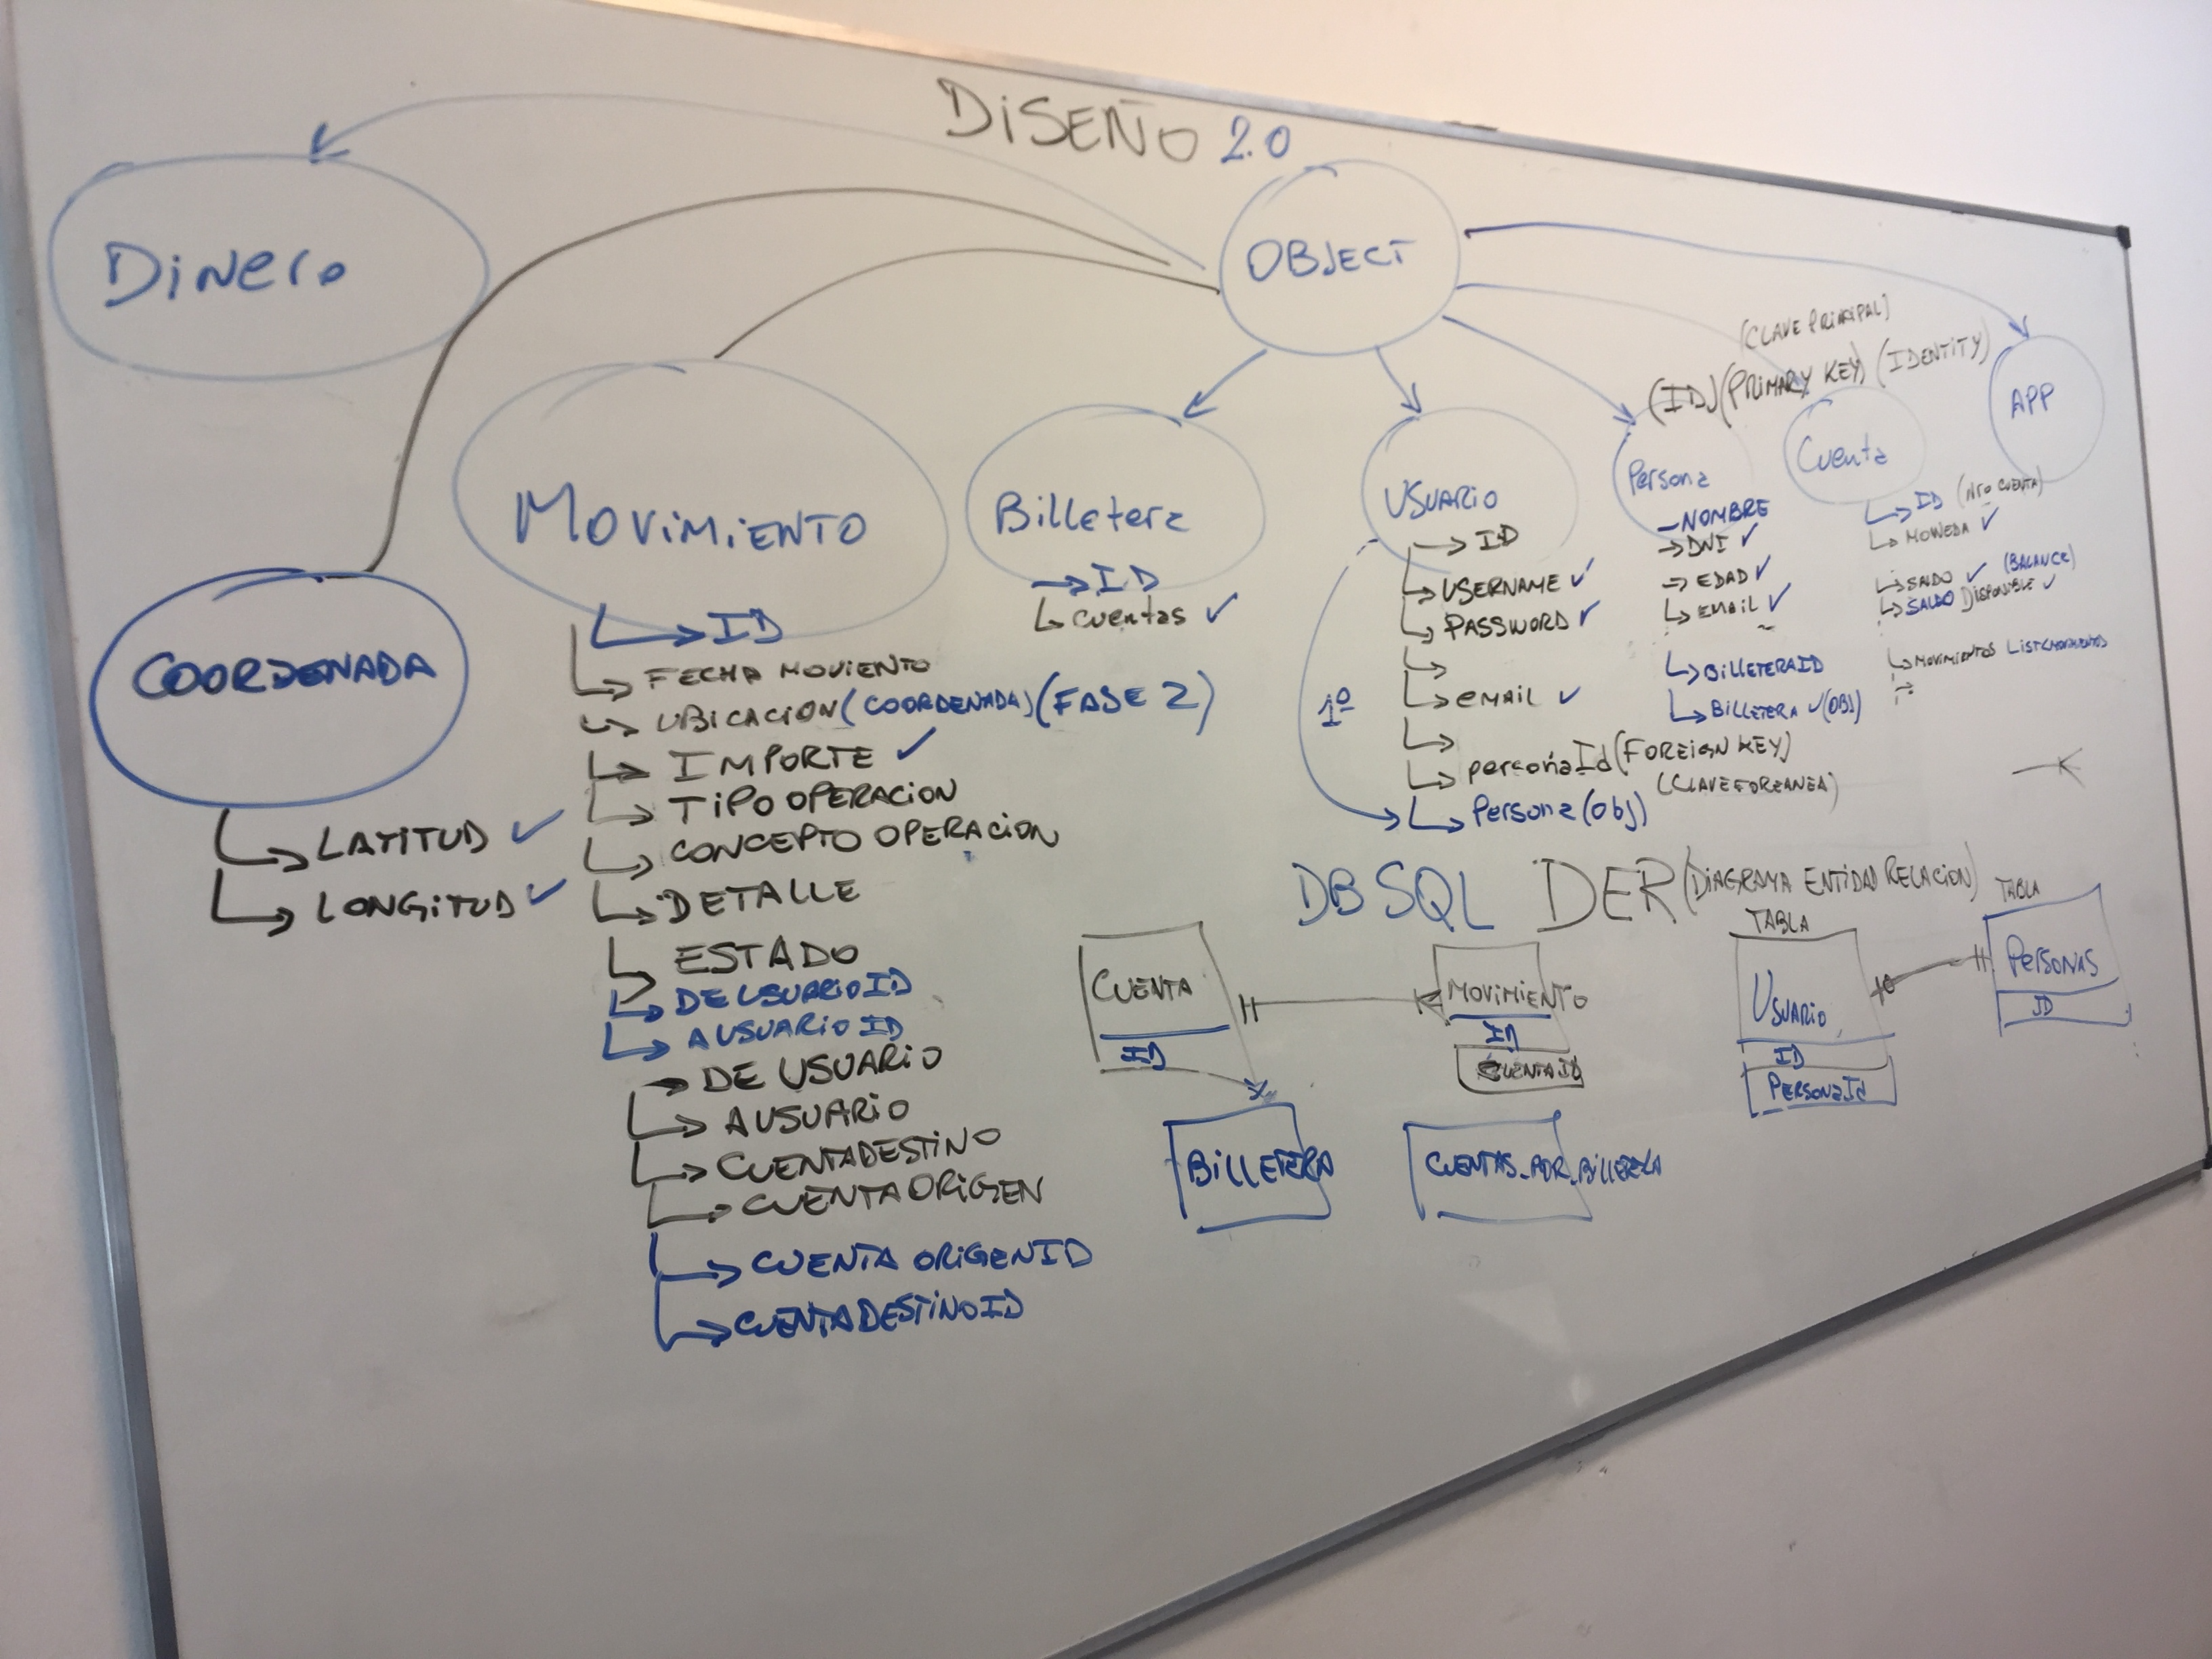 DISEÑO 2.0
OBJECT
Dinero
COORDENADA
LATITUD ✓
LONGITUD ✓
MOVIMIENTO
ID
FECHA MOVIENTO
UBICACION (COORDENADA) (FASE 2)
IMPORTE ✓
TIPO OPERACION
CONCEPTO OPERACION
DETALLE
ESTADO
DE USUARIO ID
A USUARIO ID
DE USUARIO
A USUARIO
CUENTADESTINO
CUENTA ORIGEN
CUENTA ORIGEN ID
CUENTADESTINO ID
Billetera
ID
cuentas ✓
USUARIO
ID
USERNAME ✓
PASSWORD ✓
email ✓
personaId (FOREIGN KEY)
(CLAVE FOREANEA)
1º
Persona (Obj)
(CLAVE PRINCIPAL)
(ID) (PRIMARY KEY) (IDENTITY)
Persona
NOMBRE
DNI ✓
EDAD ✓
EMAIL ✓
BILLETERAID
BILLETERA ✓ (OBJ)
Cuenta
ID (NRO CUENTA)
MONEDA ✓
SALDO ✓ (BALANCE)
SALDO DISPONIBLE ✓
MOVIMIENTOS LIST<MOVIMIENTOS
APP
DB SQL DER (DIAGRAMA ENTIDAD RELACION)
CUENTA
ID
MOVIMIENTO
ID
CUENTA ID
TABLA
USUARIO
ID
PERSONaId
TABLA
PERSONAS
ID
BILLETERA
CUENTAS_POR_BILLETERA